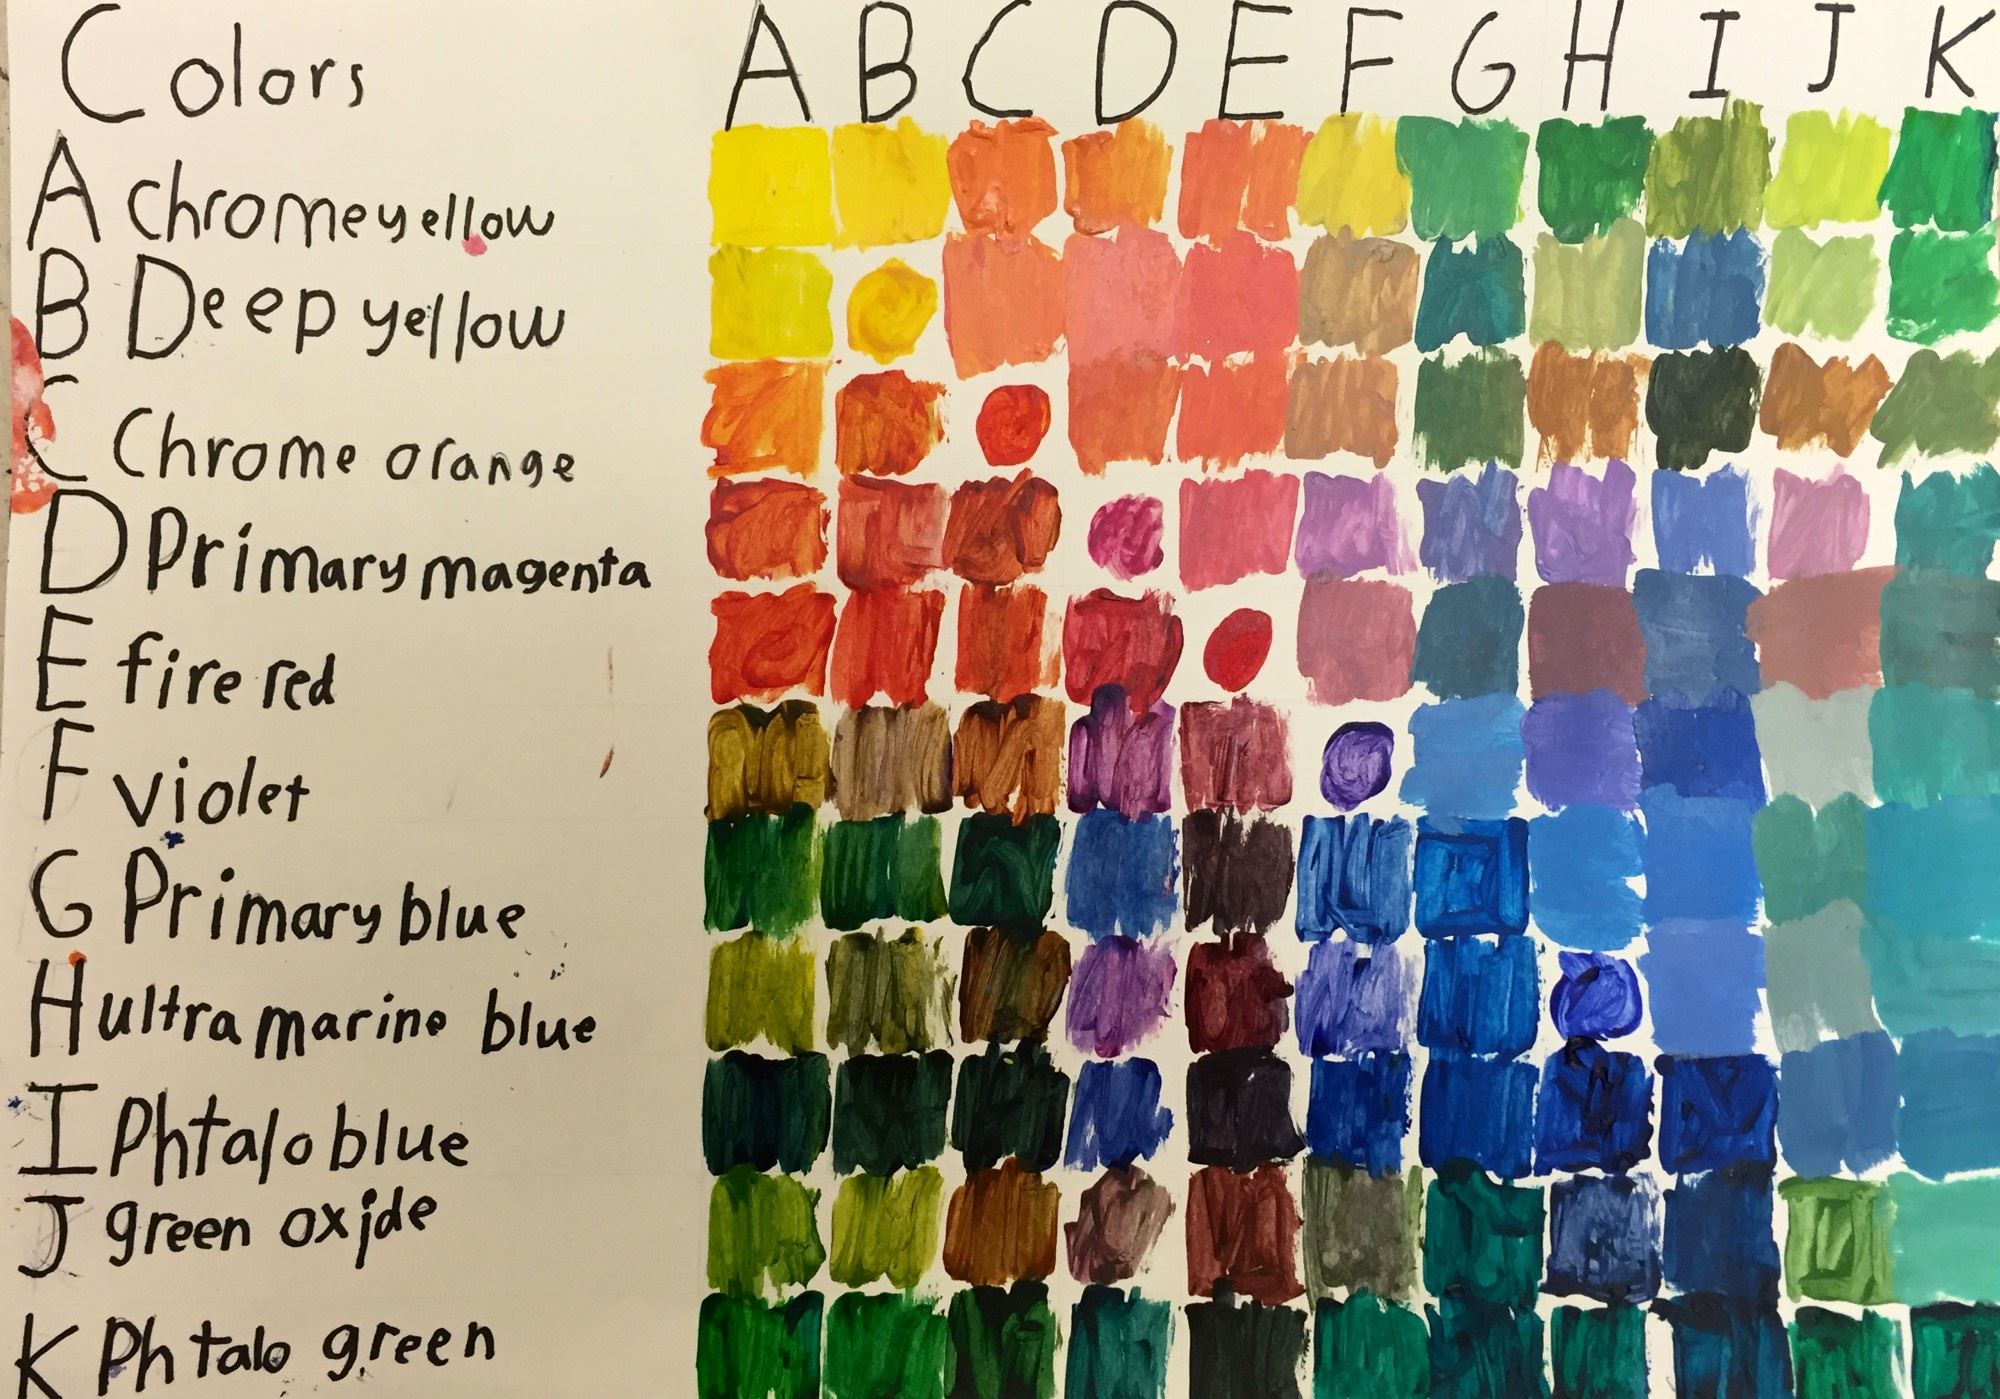 Colors A B C D E F G H I J K
A chrome yellow
B Deep yellow
C Chrome orange
D Primary magenta
E fire red
F violet
G Primary blue
H ultra marine blue
I Phtalo blue
J green oxide
K Phtalo green